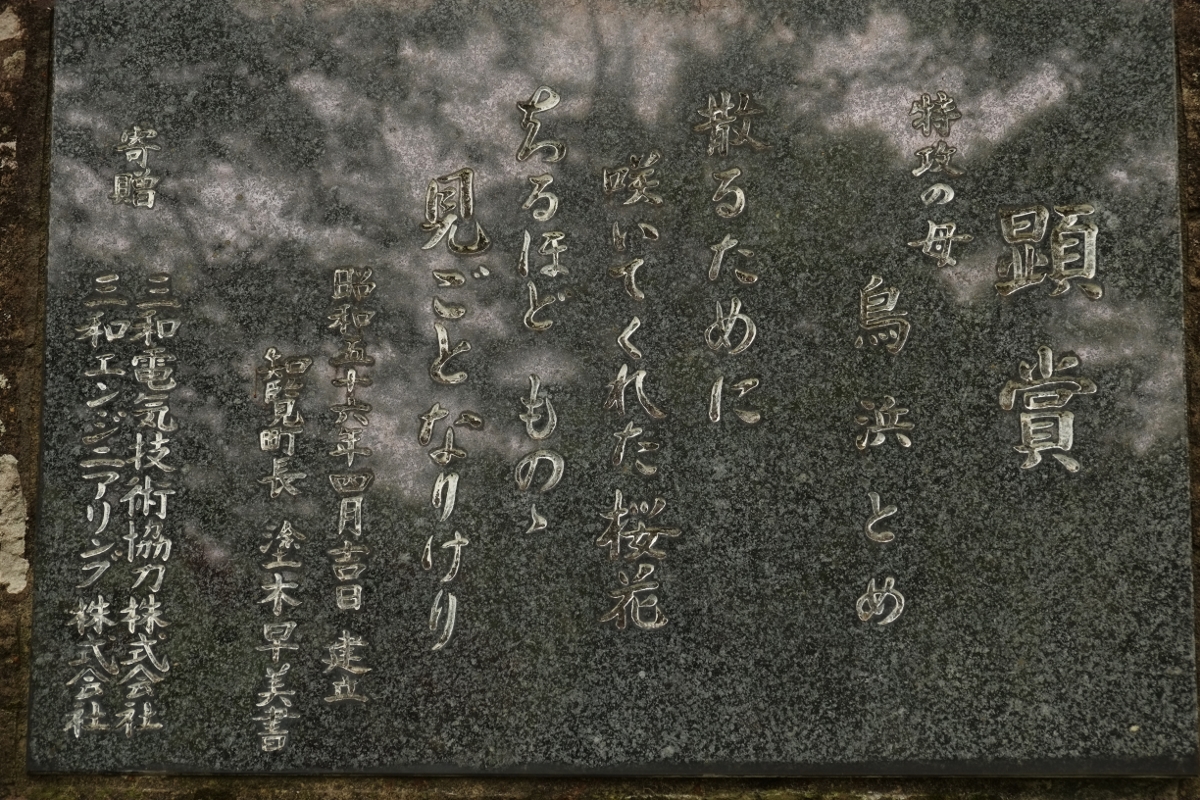 顕賞
特攻の母
鳥浜とめ
散るために
咲いてくれた桜花
ちるほどものゝ
見ごとなりけり
昭和五十六年四月吉日 建立
知覧町長 塗木早美書
寄贈
三和電気技術協力株式会社
三和エンジニアリング株式会社